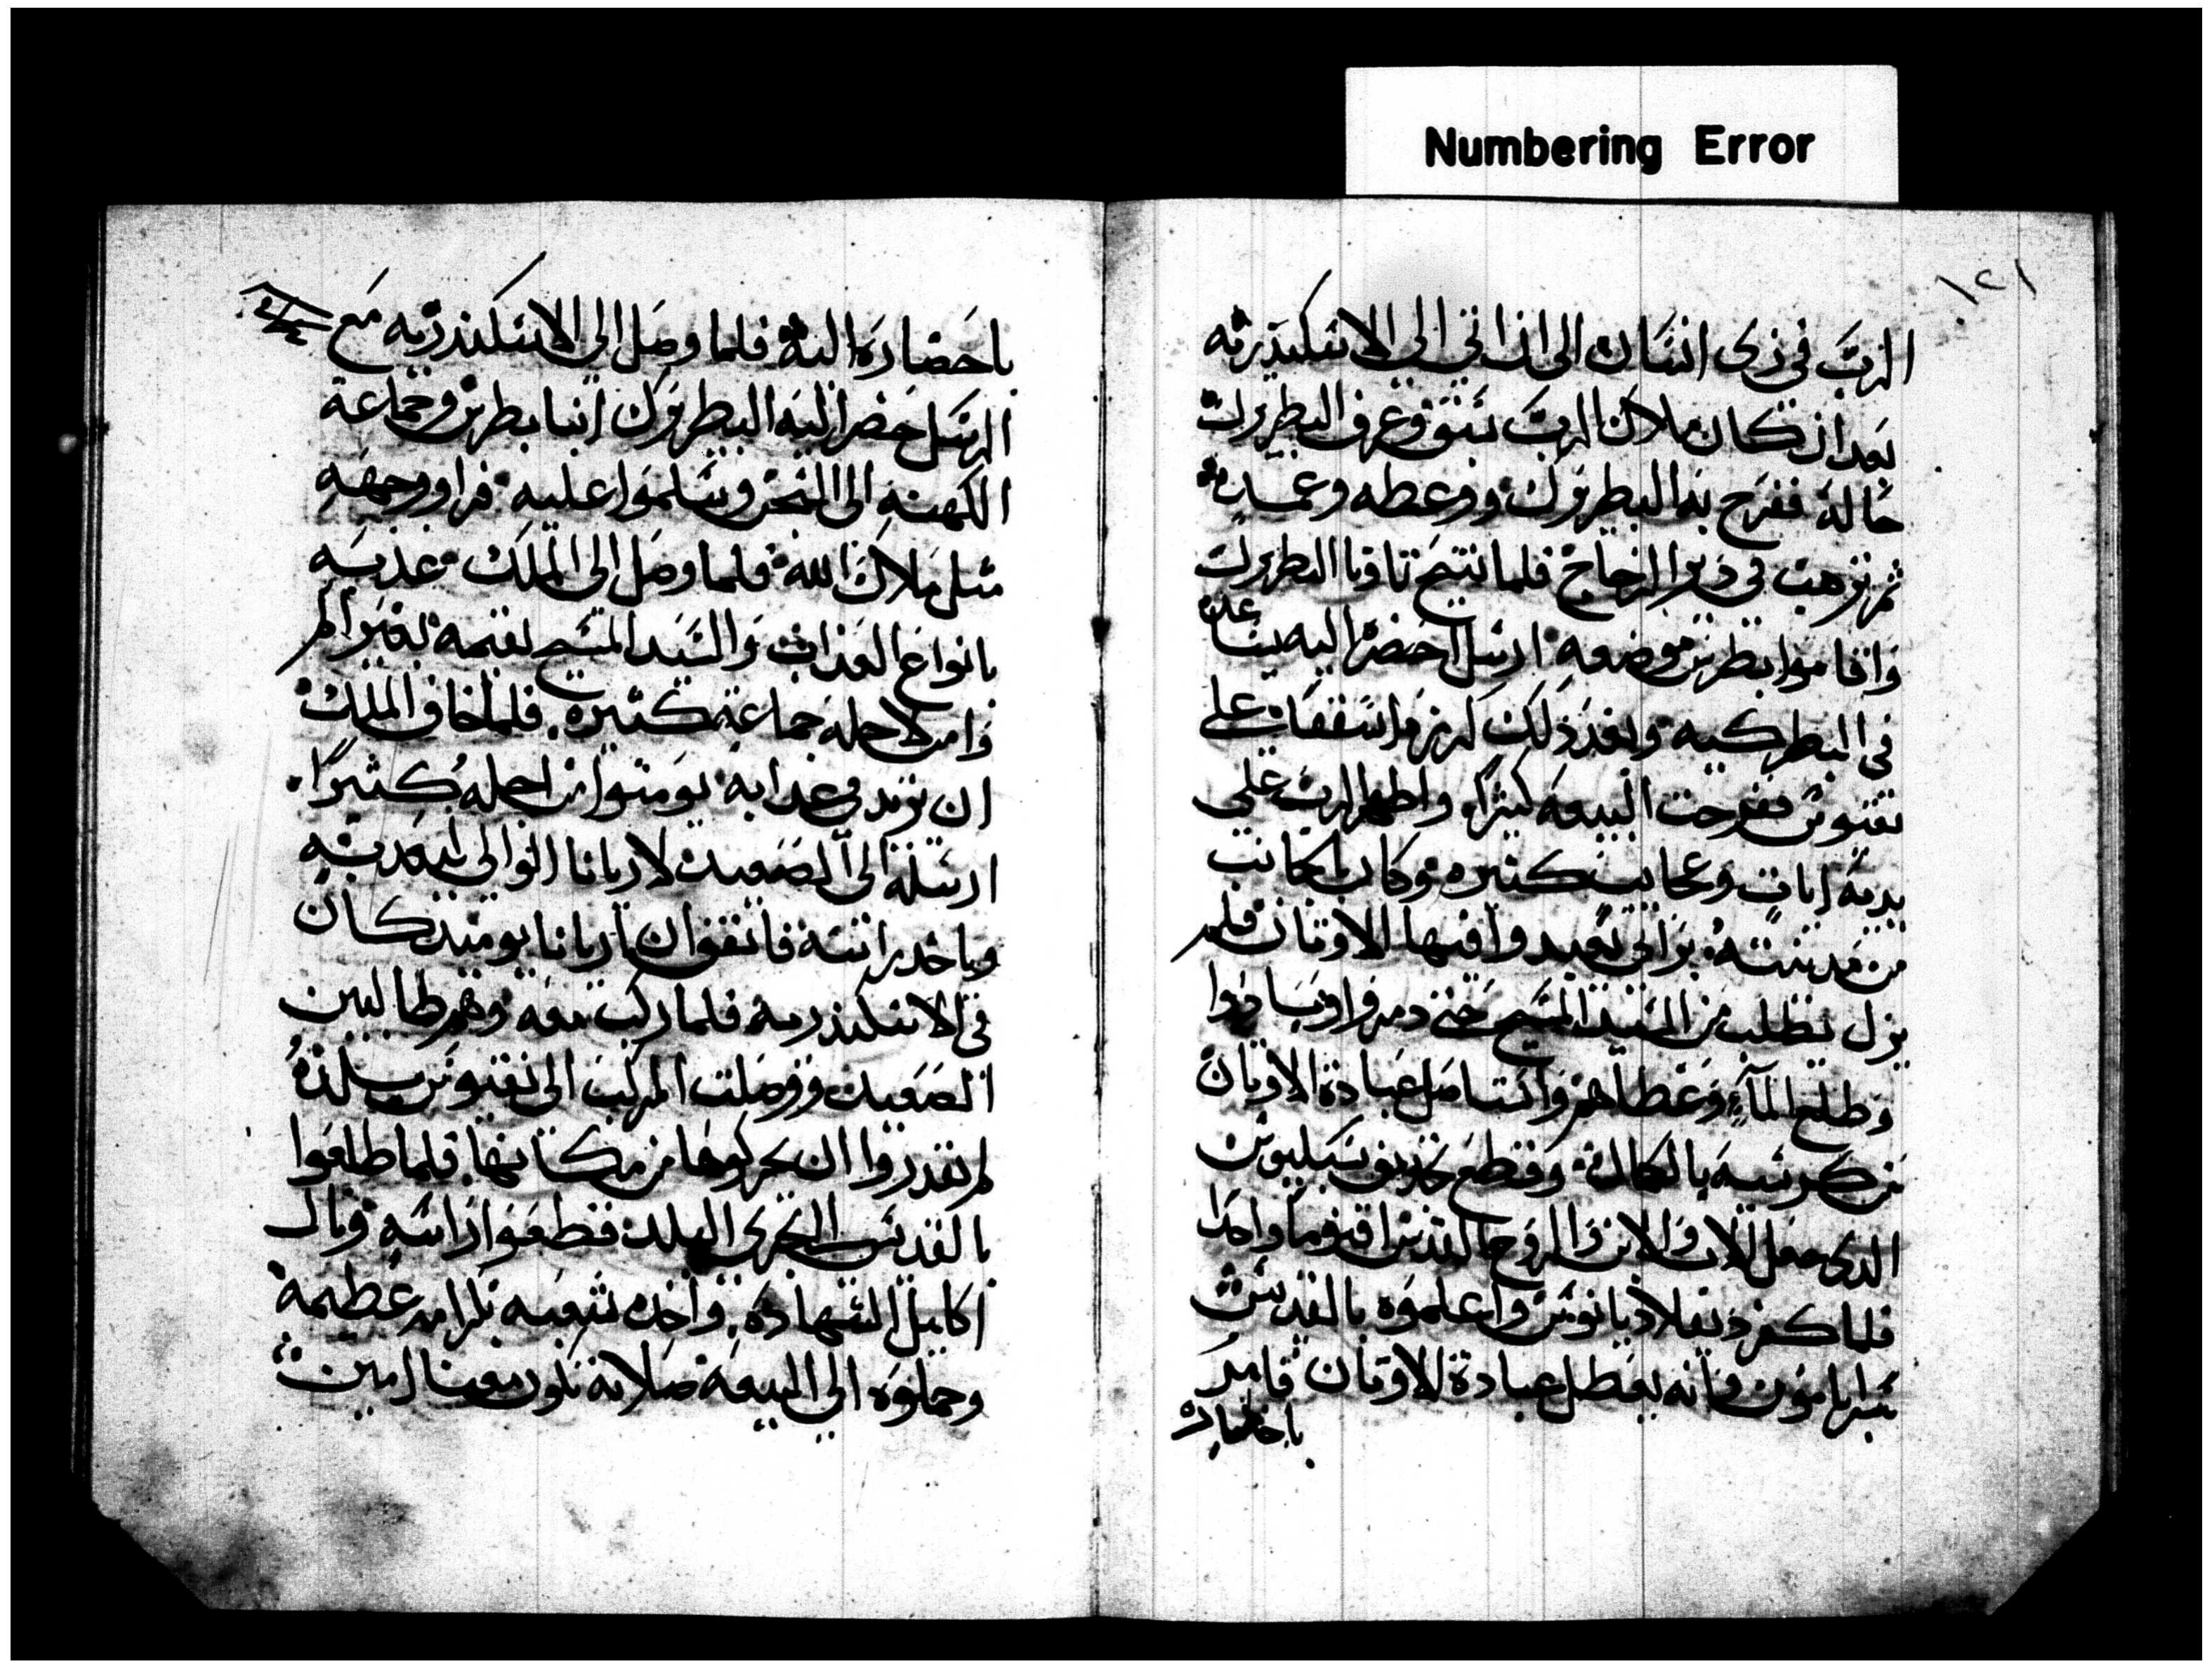 Numbering Error
١٢١
الرب في زى انسان الى ان اتى الى الاسكندريه
بعد ان كان ملاك الرب سبق وعرف البطريرك
حاله ففرح به البطريرك ووعظه وعمده
ثم ترهب في دير الزجاج فلما تنيح تاونا البطريرك
واقاموا بطرس موضعه ارسل احضره اليه يساعده
في البطركيه وبعد ذلك كرزه اسقفا على
نقيوس ففرحت البيعه كثيرا واظهر الرب على
يديه ايات وعجايب كثيره وكان بجانب
من مدينته برابي يعبد فيها الاوثان فلم
يزل يطلب من السيد المسيح حتى دمروا وبادوا
وطلع الماء وغطاهم واستاصل عبادة الاوثان
من كرسيه بالكمال وقطع تجديف سبليوس
الدى جعل الاب والابن والروح القدس اقنوما واحدا
فلما كفر دقلاديانوس واعلموه بالقديس
سرابامون وانه يبطل عبادة الاوثان فامر
باحضاره
باحضاره اليه فلما وصل الى الاسكندريه مع
الرسل حضر اليه البطريرك انبا بطرس وجماعة
الكهنه الى السجن وسلموا عليه فراو وجهه
مثل ملاك الله فلما وصل الى الملك عذبه
بانواع العذاب والسيد المسيح يقيمه بغير الم
وامن لاجله جماعة كثيره فلما خاف الملك
ان يزيد في عدابه يومنوا من اجله كثيرا
ارسله الى الصعيد لاريانا الوالي ليعدبه
وياخد راسه فاتفق ان اريانا يوميد كان
في الاسكندريه فلما ركب معه وهم طالبين
الصعيد ووصلت المركب الى نقيوس بلده
لم يقدروا ان يحركوها من مكانها فلما طلعوا
بالقديس البحرى البلد فقطعوا راسه ونال
اكليل الشهاده واخده شعبه بكرامه عظيمه
وحملوه الى البيعه صلاته تكون معنا امين